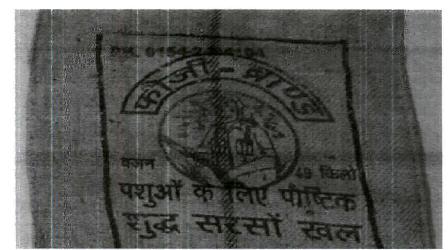 फौजी - ब्राण्ड
वजन 49 किलो
पशुओं के लिए पौष्टिक
शुद्ध सरसों खल